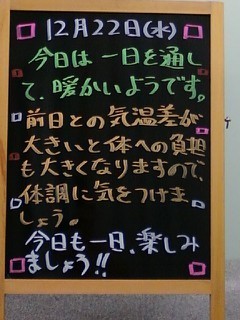 12月22日(水)
今日は一日を通し
て、暖かいようです。
前日との気温差が
大きいと体への負担
も大きくなりますので、
体調に気をつけま
しょう。
今日も一日、楽しみ
ましょう!!